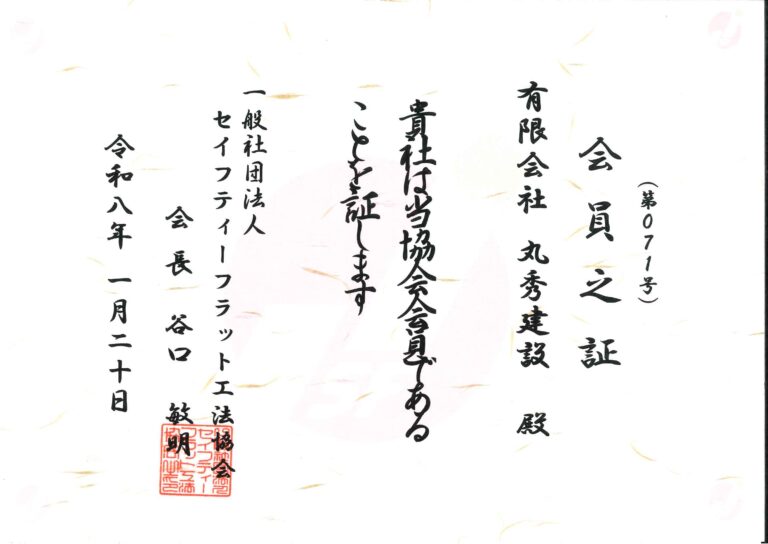 (第071号)
会員之証
有限会社 丸秀建設 殿
貴社は当協会会員である
ことを証します
一般社団法人
セイフティーフラット工法協会
会長 谷口 敏明
令和八年 一月二十日